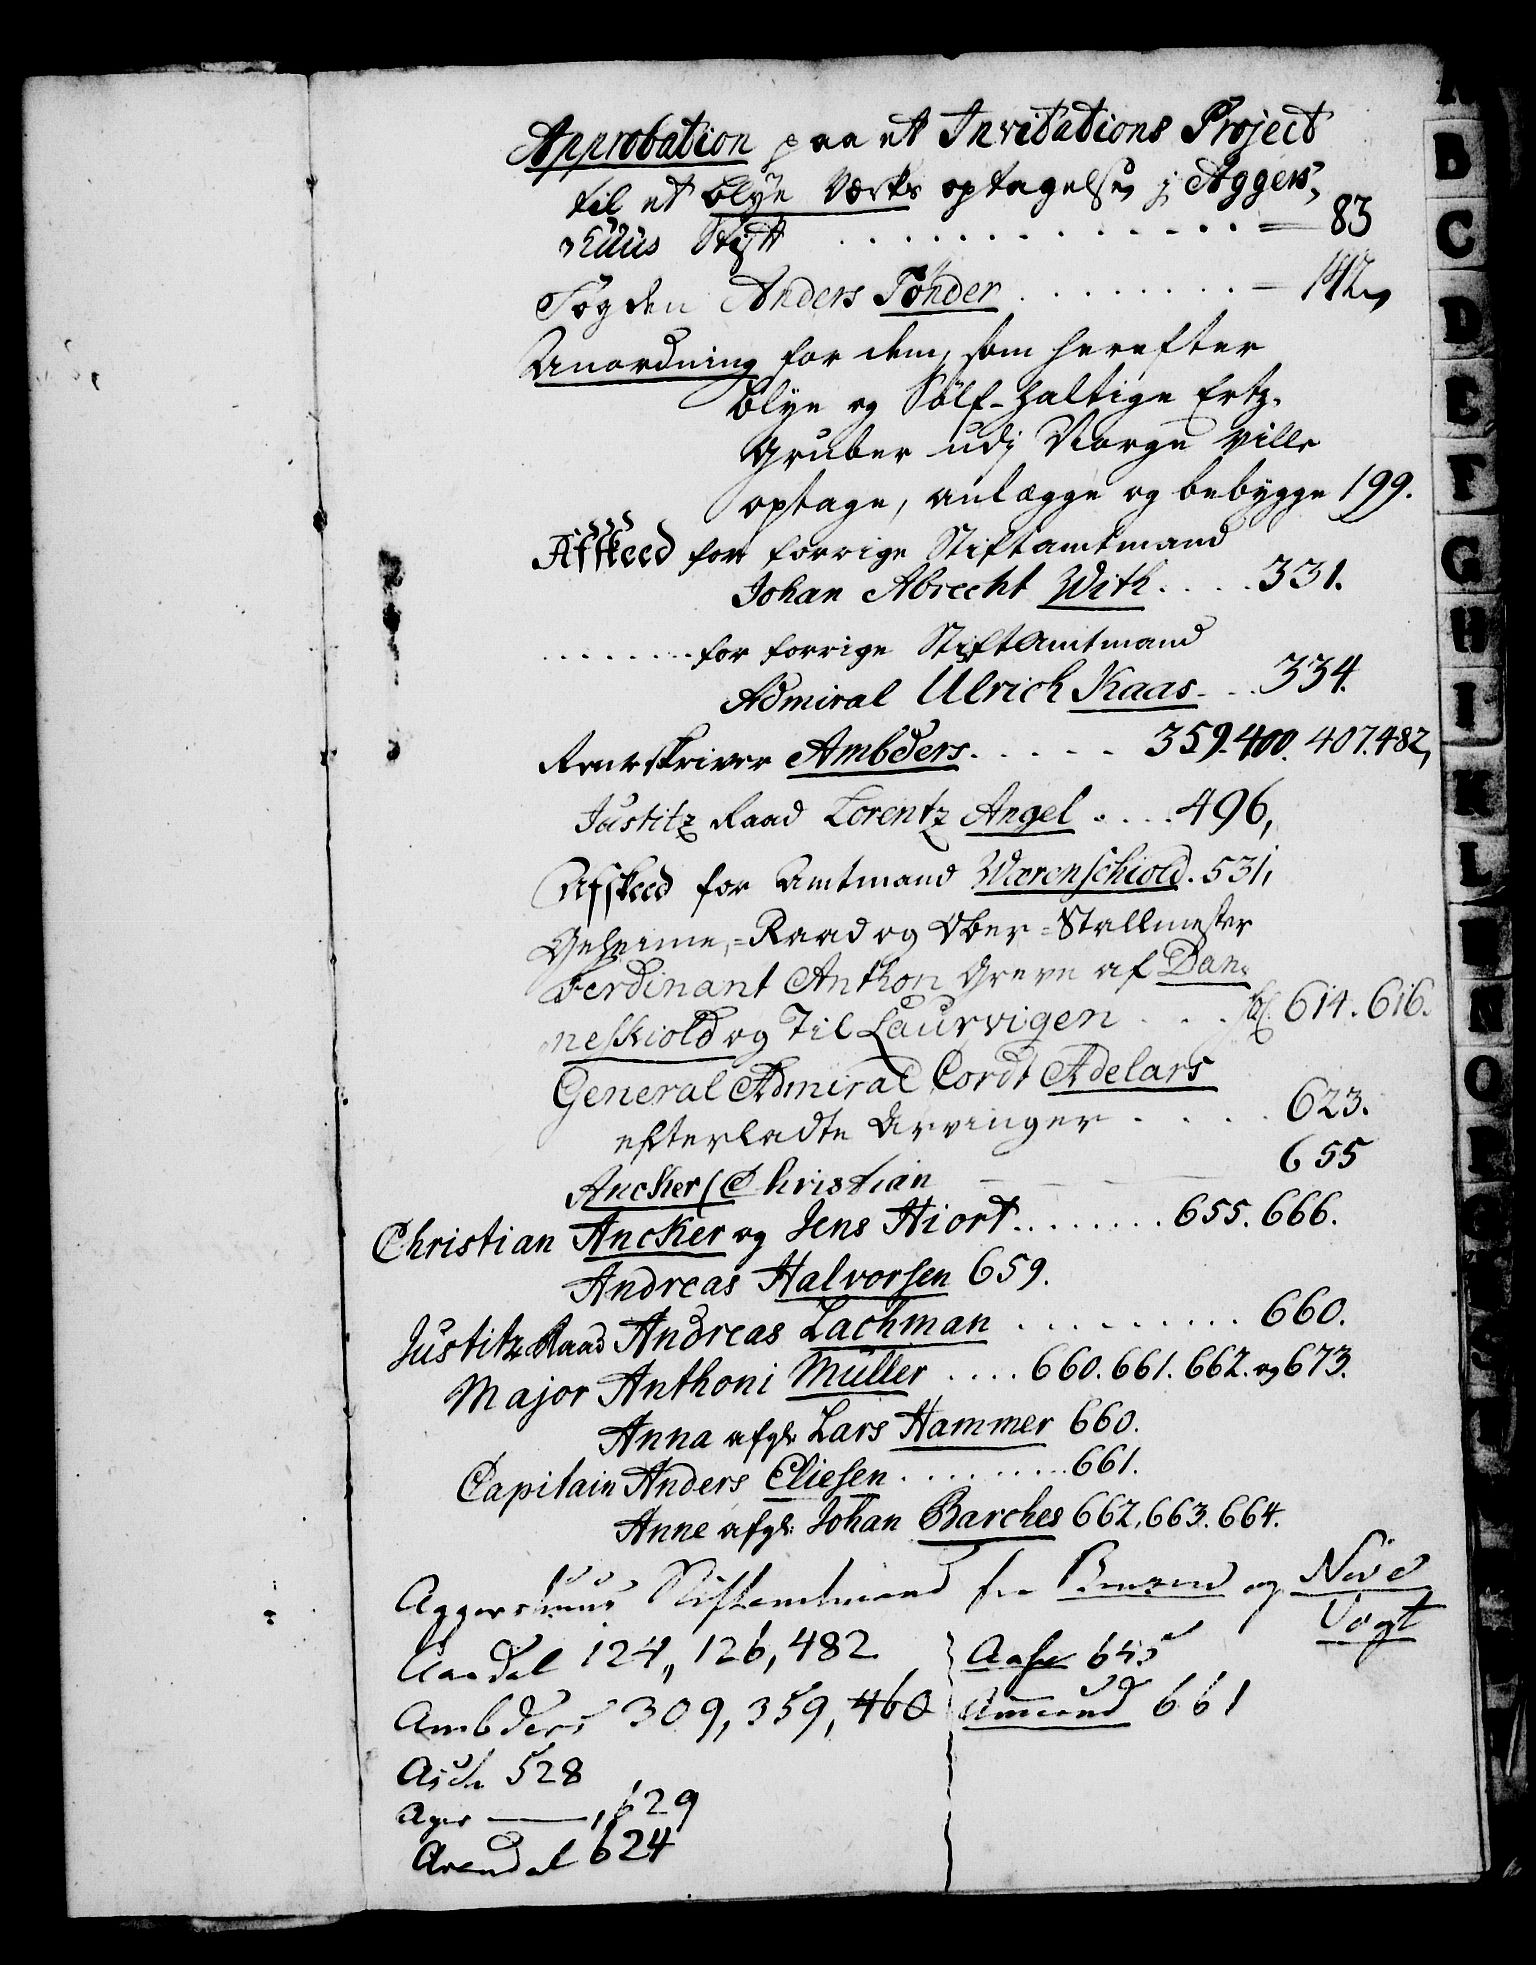 Approbation paa et Invitations Project
til et blye Værks optagelse j Aggers,
huus Stift . . . . . . . . . . . . . = 83
Fogden Anders Tönder . . . . . . . . . – 142,
Anordning for dem, som herefter
blye og Sölf-haltige Ertz-
Gruber udj Norge ville
optage, anlægge og bebygge 199.
Afskeed for forrige Stiftamtmand
Johan Abrecht With . . . . 331.
. . . . . . . . for forrige Stiftamtmand
Admiral Ulrich Kaas . . . 334.
Renteskriver Ambders . . . . . . 359. 400. 407. 482,
Justitz Raad Lorentz Angel . . . . 496,
Afskeed for Amtmand Werenschiold. 531,
Geheime,=Raad og Ober=Stallmester
Ferdinant Anthon Greve af Dan-
neskiold og Til Laurvigen . . . 614. 616.
General Admiral Cordt Adelars
efterladte Arvinger . . . . . 623.
Ancker (Christian – – – – – 655
Christian Ancker og Jens Hiort . . . . . . . . 655. 666.
Andreas Halvorsen 659.
Justitz Raad Andreas Lachman . . . . . . . . . . 660.
Major Anthoni Müller . . . . 660. 661. 662. og 673.
Anna afgl: Lars Hammer 660.
Capitain Anders Eliesen . . . . . . . . . 661.
Anne afgl: Johan Barches 662, 663. 664.
Aggershuus Stiftamtmand fra og
Vogt
124,, 126, 482
Aase 645
Ambders 309, 359, 460
Amund 661
Asch 528
Ager ——, 629
Arendal 624
B
C
D
E
F
G
H
I
K
L
N
O